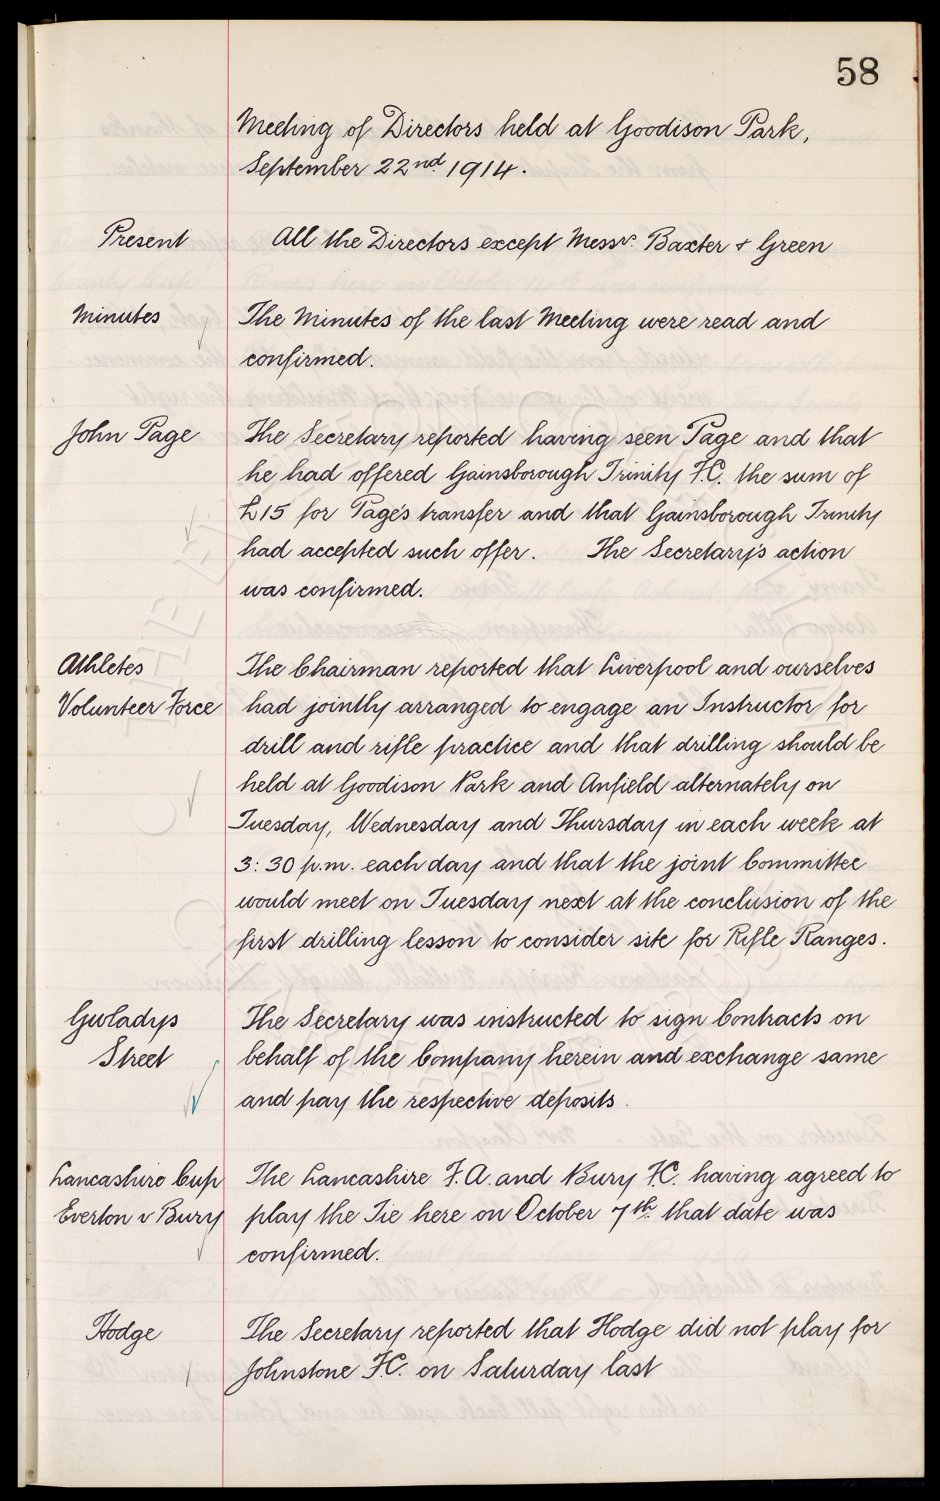 58
Meeting of Directors held at Goodison Park,
September 22nd 1914.
Present
All the Directors except Messrs. Baxter + Green
Minutes
The Minutes of the last Meeting were read and
confirmed.
John Page
The Secretary reported having seen Page and that
he had offered Gainsborough Trinity F.C. the sum of
£15 for Page's transfer and that Gainsborough Trinity
had accepted such offer. The Secretary's action
was confirmed.
Athletes
Volunteer Force
The Chairman reported that Liverpool and ourselves
had jointly arranged to engage an Instructor for
drill and rifle practice and that drilling should be
held at Goodison Park and Anfield alternately on
Tuesday, Wednesday and Thursday in each week at
3:30 p.m. each day and that the joint Committee
would meet on Tuesday next at the conclusion of the
first drilling lesson to consider site for Rifle Ranges.
Gwladys
Street
The Secretary was instructed to sign Contracts on
behalf of the Company herein and exchange same
and pay the respective deposits.
Lancashire Cup
Everton v Bury
The Lancashire F.A. and Bury F.C. having agreed to
play the Tie here on October 7th that date was
confirmed.
Hodge
The Secretary reported that Hodge did not play for
Johnstone F.C. on Saturday last